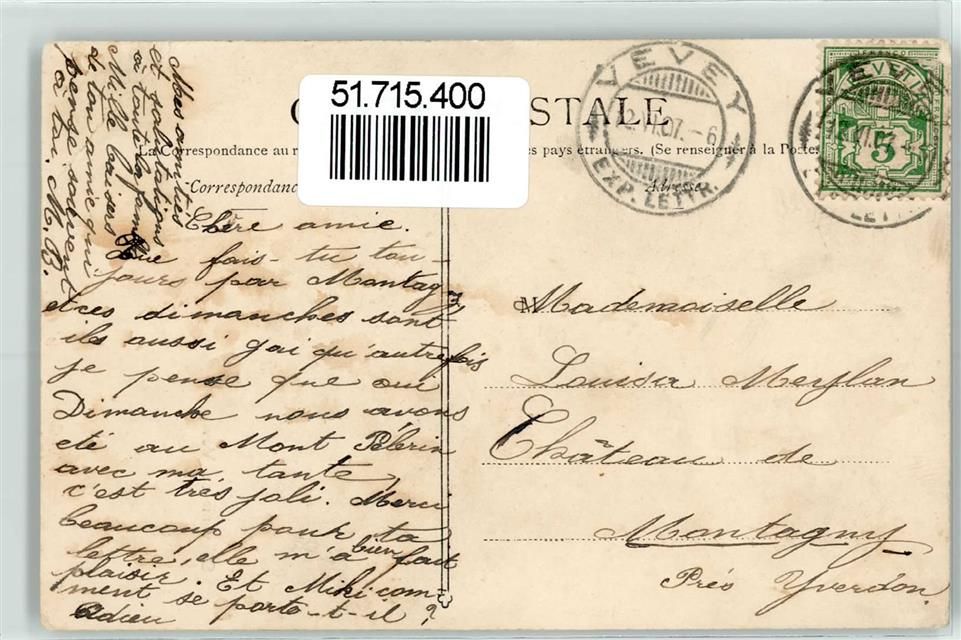 51.715.400
C STALE
La Correspondance au r es pays étrangers. (Se renseigner à la Poste
Correspondanc
Adresse
VEVEY
VI.07.-6
EXP. LETTR.
FRANCO
5
VEVEY
LETTR
Chère amie.
Que fais-tu tou-
jours par Montagny
et ces dimanches sont
ils aussi gai qu'autrefois
je pense que oui
Dimanche nous avons
été au Mont Pélerin
avec ma tante,
c'est très joli. Merci
beaucoup pour ta
lettre, elle m'a bien fait
plaisir. Et Miki com-
ment se porte-t-il?
Adieu
Mes amitiés
et salutations
à toute la famille
Mille baisers
de ton amie qui
pense souvent
à toi. M. B.
Mademoiselle
Louisa Meylan
Château de
Montagny
Près Yverdon.